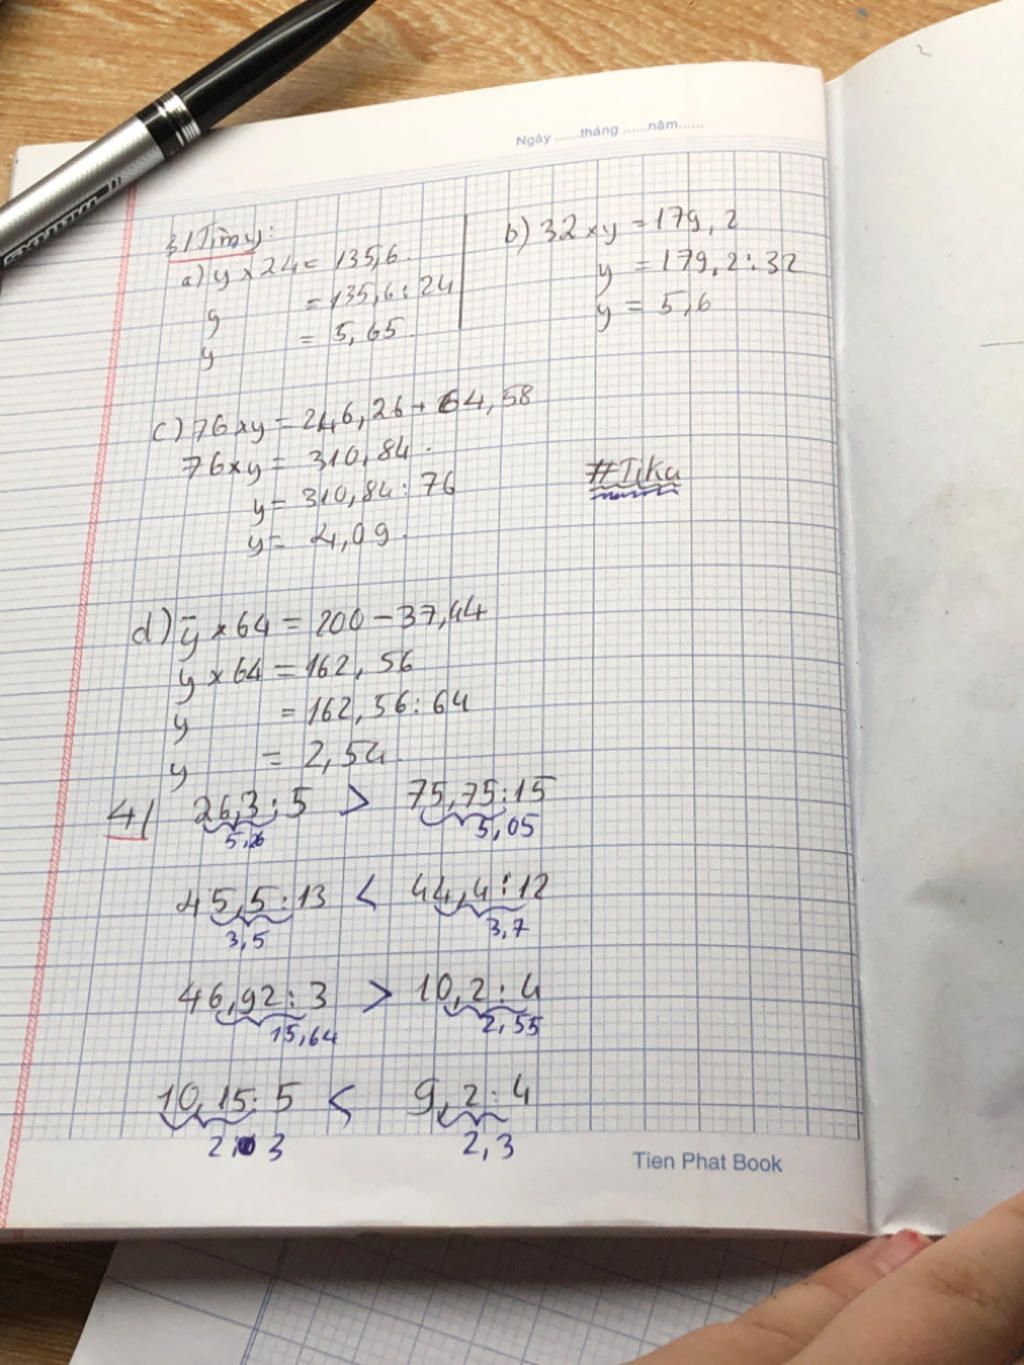 Ngày ......tháng ......năm......
3/ Tìm y:
a) y × 24 = 135,6
y = 135,6 : 24
y = 5,65
b) 32 × y = 179,2
y = 179,2 : 32
y = 5,6
c) 76 × y = 246,26 + 64,58
76 × y = 310,84
y = 310,84 : 76
y = 4,09
#TiKa
d) y × 64 = 200 - 37,44
y × 64 = 162,56
y = 162,56 : 64
y = 2,54
4/ 26,3 : 5 > 75,75 : 15
5,26 5,05
45,5 : 13 < 44,4 : 12
3,5 3,7
46,92 : 3 > 10,2 : 4
15,64 2,55
10,15 : 5 < 9,2 : 4
2,03 2,3
Tien Phat Book